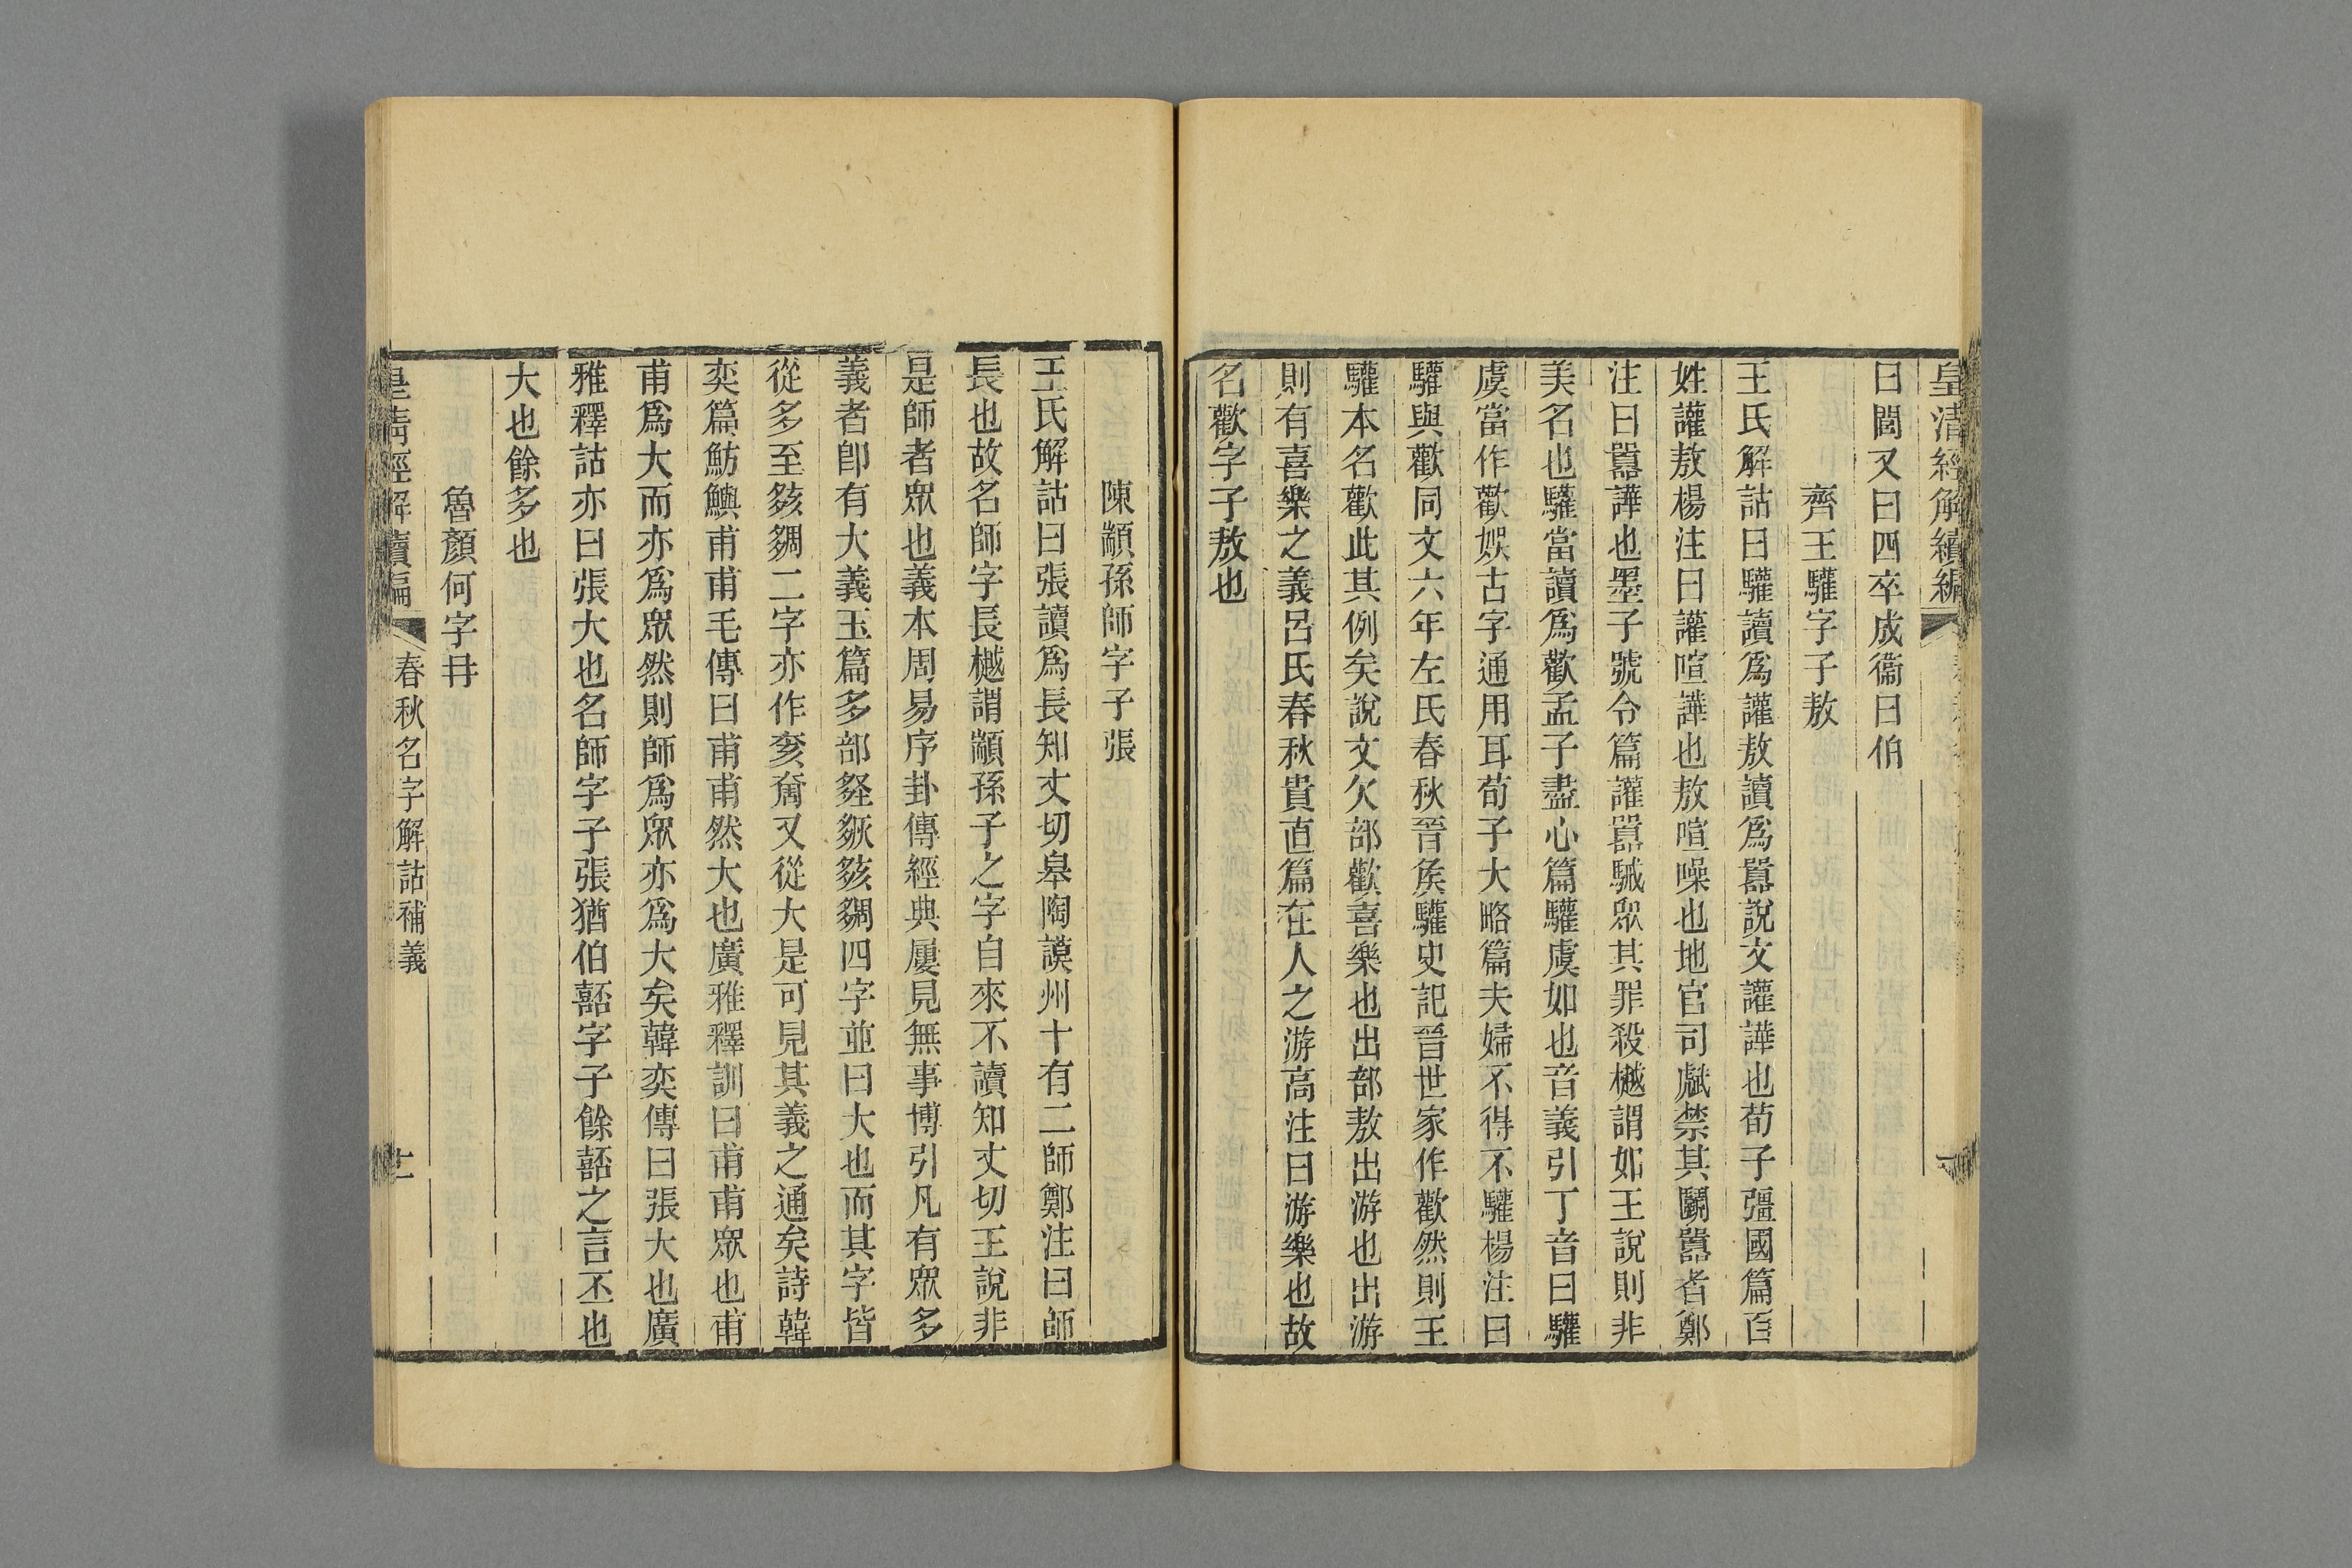 皇清經解續編
曰閭又曰四卒成衞曰伯
齊王驩字子敖
王氏解詁曰驩讀爲讙敖讀爲囂說文讙譁也荀子彊國篇百
姓讙敖楊注曰讙喧譁也敖喧噪也地官司虣禁其鬭囂者鄭
注曰囂譁也墨子號令篇讙囂駴眾其罪殺樾謂如王說則非
美名也驩當讀爲歡孟子盡心篇驩虞如也音義引丁音曰驩
虞當作歡娛古字通用耳荀子大略篇夫婦不得不驩楊注曰
驩與歡同文六年左氏春秋晉侯驩史記晉世家作歡然則王
驩本名歡此其例矣說文欠部歡喜樂也出部敖出游也出游
則有喜樂之義呂氏春秋貴直篇在人之游高注曰游樂也故
名歡字子敖也
陳顓孫師字子張
王氏解詁曰張讀爲長知丈切皋陶謨州十有二師鄭注曰師
長也故名師字長樾謂顓孫子之字自來不讀知丈切王說非
是師者眾也義本周易序卦傳經典屢見無事博引凡有眾多
義者卽有大義玉篇多部夥㚌㚊㚋四字並曰大也而其字皆
從多至㚊㚋二字亦作奒奝又從大是可見其義之通矣詩韓
奕篇魴鱮甫甫毛傳曰甫甫然大也廣雅釋訓曰甫甫眾也甫
甫爲大而亦爲眾然則師爲眾亦爲大矣韓奕傳曰張大也廣
雅釋詁亦曰張大也名師字子張猶伯嚭字子餘嚭之言丕也
大也餘多也
魯顏何字冄
皇清經解續編 春秋名字解詁補義 十二